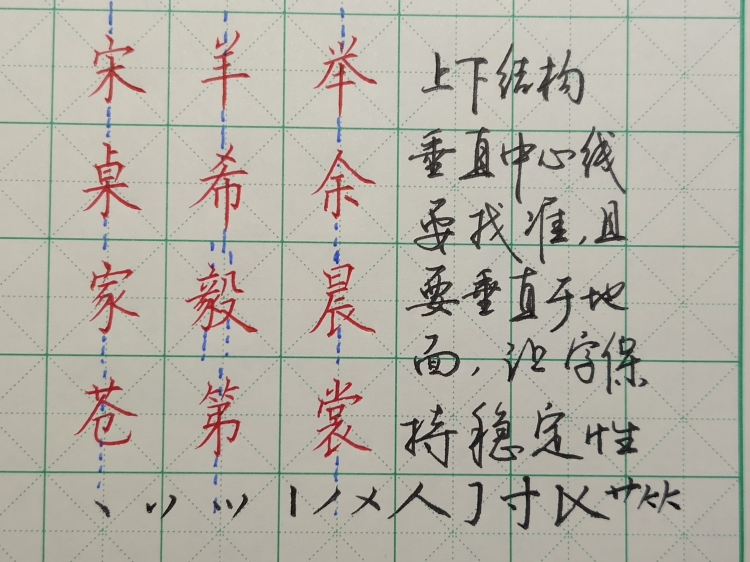 宋 羊 举 上下结构
桌 希 余 垂直中心线
要找准，且
家 毅 晨 要垂直于地
面，让字保
苍 第 裳 持稳定性
人 寸